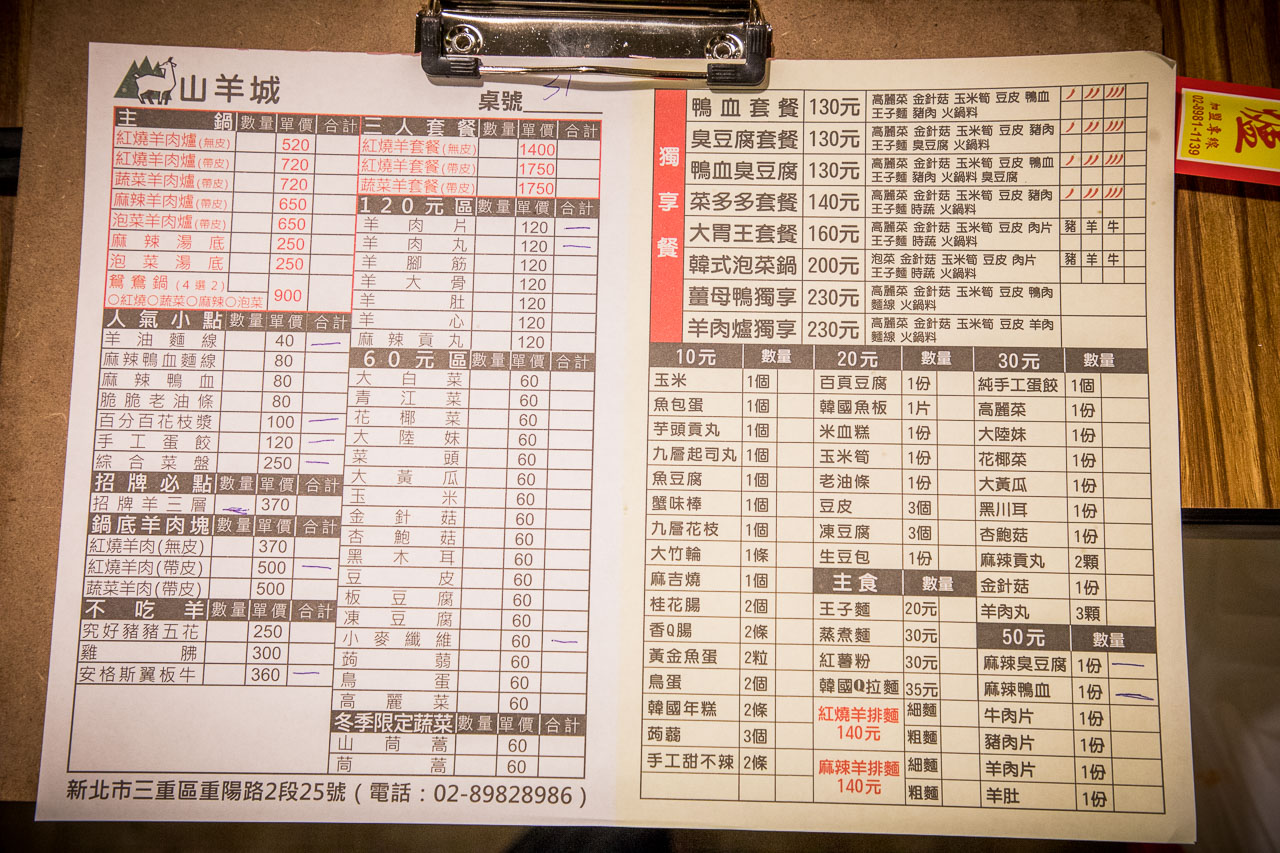 山羊城
桌號 31
主鍋 數量 單價 合計
紅燒羊肉爐(無皮) 520
紅燒羊肉爐(帶皮) 720
蔬菜羊肉爐(帶皮) 720
麻辣羊肉爐(帶皮) 650
泡菜羊肉爐(帶皮) 650
麻辣湯底 250
泡菜湯底 250
鴛鴦鍋(4選2) 900
○紅燒○蔬菜○麻辣○泡菜
人氣小點 數量 單價 合計
羊油麵線 40
麻辣鴨血麵線 80
麻辣鴨血 80
脆脆老油條 80
百分百花枝漿 100
手工蛋餃 120
綜合菜盤 250
招牌必點 數量 單價 合計
招牌羊三層 370
鍋底羊肉塊 數量 單價 合計
紅燒羊肉(無皮) 370
紅燒羊肉(帶皮) 500
蔬菜羊肉(帶皮) 500
不吃羊 數量 單價 合計
究好豬豬五花 250
雞腓 300
安格斯翼板牛 360
三人套餐 數量 單價 合計
紅燒羊套餐(無皮) 1400
紅燒羊套餐(帶皮) 1750
蔬菜羊套餐(帶皮) 1750
120元區 數量 單價 合計
羊肉片 120
羊肉丸 120
羊腳筋 120
羊大骨 120
羊肚 120
羊心 120
麻辣貢丸 120
60元區 數量 單價 合計
大白菜 60
青江菜 60
花椰菜 60
大陸妹 60
菜頭 60
大黃瓜 60
玉米 60
金針菇 60
杏鮑菇 60
黑木耳 60
豆皮 60
板豆腐 60
凍豆腐 60
小麥纖維 60
蒟蒻 60
鳥蛋 60
高麗菜 60
冬季限定蔬菜 數量 單價 合計
山茼蒿 60
茼蒿 60
新北市三重區重陽路2段25號(電話:02-89828986)
獨享餐
鴨血套餐 130元 高麗菜 金針菇 玉米筍 豆皮 鴨血
王子麵 豬肉 火鍋料
臭豆腐套餐 130元 高麗菜 金針菇 玉米筍 豆皮 豬肉
王子麵 臭豆腐 火鍋料
鴨血臭豆腐 130元 高麗菜 金針菇 玉米筍 豆皮 鴨血
王子麵 豬肉 火鍋料 臭豆腐
菜多多套餐 140元 高麗菜 金針菇 玉米筍 豆皮 豬肉
王子麵 時蔬 火鍋料
大胃王套餐 160元 高麗菜 金針菇 玉米筍 豆皮 肉片 豬 羊 牛
王子麵 時蔬 火鍋料
韓式泡菜鍋 200元 泡菜 金針菇 玉米筍 豆皮 肉片 豬 羊 牛
王子麵 時蔬 火鍋料
薑母鴨獨享 230元 高麗菜 金針菇 玉米筍 豆皮 鴨肉
麵線 火鍋料
羊肉爐獨享 230元 高麗菜 金針菇 玉米筍 豆皮 羊肉
麵線 火鍋料
10元 數量
玉米 1個
魚包蛋 1個
芋頭貢丸 1個
九層起司丸 1個
魚豆腐 1個
蟹味棒 1個
九層花枝 1個
大竹輪 1條
麻吉燒 1個
桂花腸 2個
香Q腸 2條
黃金魚蛋 2粒
鳥蛋 2個
韓國年糕 2條
蒟蒻 3個
手工甜不辣 2條
20元 數量
百頁豆腐 1份
韓國魚板 1片
米血糕 1份
玉米筍 1份
老油條 1份
豆皮 3個
凍豆腐 3個
生豆包 1份
主食 數量
王子麵 20元
蒸煮麵 30元
紅薯粉 30元
韓國Q拉麵 35元
紅燒羊排麵 細麵
140元 粗麵
麻辣羊排麵 細麵
140元 粗麵
30元 數量
純手工蛋餃 1個
高麗菜 1份
大陸妹 1份
花椰菜 1份
大黃瓜 1份
黑川耳 1份
杏鮑菇 1份
麻辣貢丸 2顆
金針菇 1份
羊肉丸 3顆
50元 數量
麻辣臭豆腐 1份
麻辣鴨血 1份
牛肉片 1份
豬肉片 1份
羊肉片 1份
羊肚 1份
加盟專線
02-8981-1139